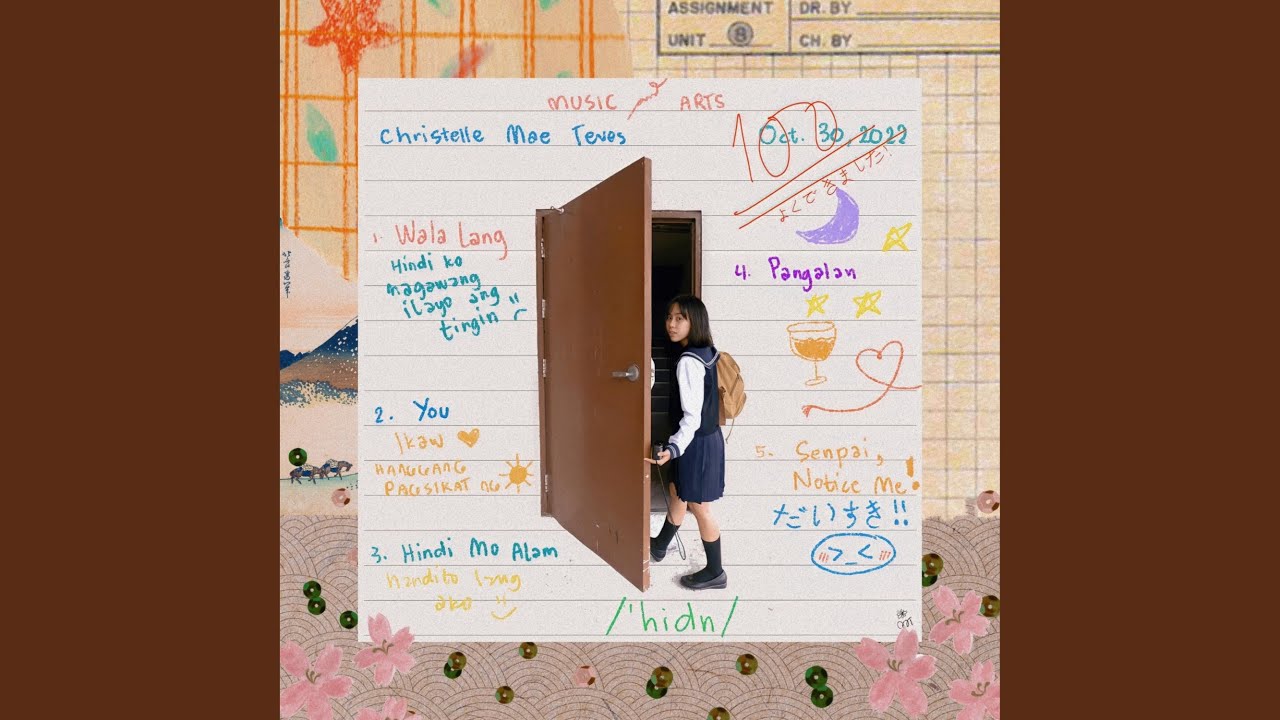 ASSIGNMENT
UNIT 8
DR. BY
CH. BY
MUSIC and ARTS
Christelle Mae Teves
Oct. 30, 2022
100
よくできました!
1. Wala Lang
Hindi ko
magawang
ilayo ang
tingin
2. You
Ikaw
HANGGANG
PAGSIKAT NG
3. Hindi Mo Alam
Nandito lang
ako
4. Pangalan
5. Senpai,
Notice Me!
だいすき!!
>_<
/'hidn/